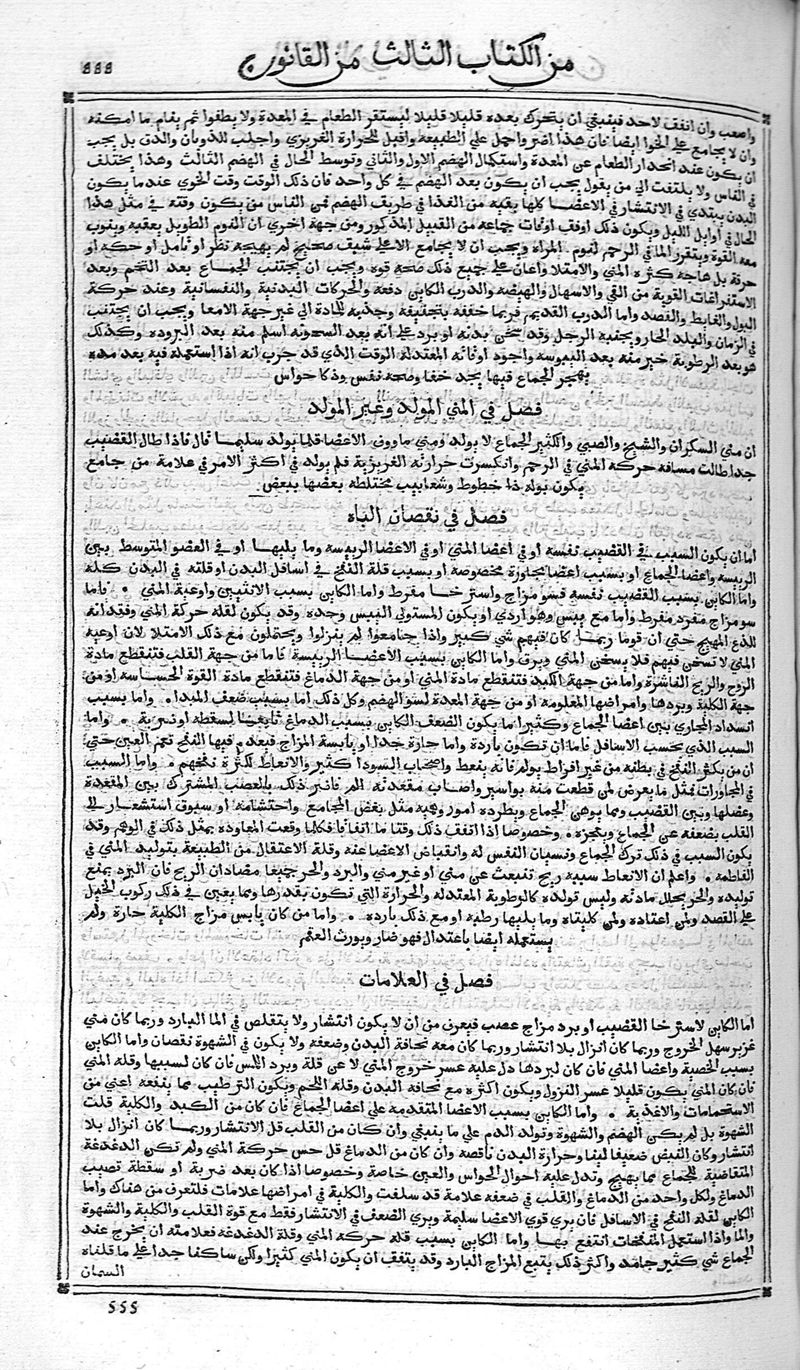 من الكتاب الثالث من القانون
٥٥٥
واصعب وان اتفق لاحد فينبغي ان يتحرك بعده قليلا قليلا ليستقر الطعام في المعدة ولا يطفوا ثم ينام ما امكنه
وان لا يجامع على الخوا ايضا فان هذا اضر واحمل علي الطبيعة واقتل للحرارة الغريزي واجلب للذوبان والدق بل يجب
ان يكون عند انحدار الطعام عن المعدة واستكمال الهضم الاول والثاني وتوسط الحال في الهضم الثالث وهذا يختلف
في الناس ولا يلتفت الي من يقول يجب ان يكون بعد الهضم في كل واحد فان ذلك الوقت وقت الخوي عندما يكون
البدن يبتدي في الانتشار في الاعضا كلها بقيه من الغذا في طريق الهضم فمن الناس من يكون وقته في مثل هذا
الحال في اوايل الليل ويكون ذلك اوفق اوقات جماعه من القبيل المذكور ومن جهة اخري ان النوم الطويل يعقبه ويتوب
معه القوة ويتقرر الما في الرحم لنوم المراة ويجب ان لا يجامع الا علي شبق صحيح لم يهيجه نظر او تامل او حكه او
حرقة بل هاجه كثره المني والامتلا واعان على جميع ذلك صحة قوه ويجب ان يجتنب الجماع بعد التخم وبعد
الاستفراغات القوية من القي والاسهال والهيضه والذرب الكاين دفعه والحركات البدنية والنفسانية وعند حركة
البول والغايط والفصد واما الذرب القديم فربما خففه بتجفيفه وجذبه للمادة الي غير جهة الامعا ويجب ان يجتنب
في الزمان والبلد الحار ويجنبه الرجل وقد سخن بدنه او برد على انه بعد السخونه اسلم منه بعد البروده وكذلك
هو بعد الرطوبة خير منه بعد اليبوسه واجود اوقاته المعتدلة الوقت الذي قد جرب انه اذا استعمله فيه بعد مده
يهجر الجماع فيها يجد خفا وصحه نفس وذكا حواس
فصل في المني المولد وغير المولد
ان مني السكران والشيخ والصبي والكثير الجماع لا يولد ومني ماووف الاعضا قلما يولد سليما قال فاذا طال القضيب
جدا طالت مسافه حركة المني في الرحم وانكسرت حرارته الغريزية فلم يولد في اكثر الامر في علامة من جامع
يكون بوله ذا خطوط وشعابيب مختلطه بعضها ببعض
فصل في نقصان الباه
اما ان يكون السبب في القضيب نفسه او في اعضا المني او في الاعضا الرييسه وما يليها او في العضو المتوسط بين
الرييسه واعضا الجماع او بسبب اعضا مجاورة مخصوصة او بسبب قلة النفخ في اسافل البدن او قلته في البدن كله
واما الكاين بسبب القضيب نفسه فسو مزاج واسترخا مفرط واما الكاين بسبب الانثيين واوعية المني فاما
سو مزاج مفرد مفرط واما مع يبس وهو اردي او يكون المستولي اليبس وحده وقد يكون لقلة حركة المني وفقدانه
للذع المهيج حتي ان قوما ربما كان فيهم مني كثير واذا جامعوا لم ينزلوا ويحتلمون مع ذلك الامتلا لان اوعية
المني لا تسخن فيهم فلا يسخن المني ويرق واما الكاين بسبب الاعضا الرييسة فاما من جهة القلب فتنقطع مادة
الروح والريح الناشرة واما من جهة الكبد فتنقطع مادة المني او من جهة الدماغ فتنقطع مادة القوة الحساسه او من
جهة الكلية وبردها وامراضها المعلومه او من جهة المعدة لسو الهضم وكل ذلك اما بسبب ضعف المبدا واما بسبب
انسداد المجاري بين اعضا الجماع وكثيرا ما يكون الضعف الكاين بسبب الدماغ تابعا لسقطه او ضربة واما
السبب الذي بحسب الاسافل فاما ان تكون باردة واما حارة جدا او يابسة المزاج فيعدم فيها النفخ نعم العين حتي
ان من يكثر النفخ في بطنه من غير افراط بولم فانه ينعظ واصحاب السودا كثير والانعاظ لكثرة نفخهم واما السبب
في المجاورات فمثل ما يعرض لمن قطعت منه بواسير واصاب مقعدته الم فاضر ذلك بالعصب المشترك بين المقعدة
وعضلها وبين القضيب ومما يوهن الجماع وبطرده امور وهميه مثل بغض المجامع واحتشامه او سبوق استشعار الي
القلب بضعفه عن الجماع وبعجزه وخصوصا اذا اتفق ذلك وقتا ما اتفاقا فكلما وقعت المعاوده يمثل ذلك في الوهم وقد
يكون السبب في ذلك ترك الجماع ونسيان النفس له وانقباض الاعضا عنه وقلة الاعتقال من الطبيعة بتوليد المني في
الفاطمه واعلم ان الانعاظ سببه ريح تنبعث عن مني او غير مني والبرد والحر جميعا مضادان الريح فان البرد يمنع
توليده والحر يحلل مادته وليس تولده كالرطوبة المعتدله والحرارة التي تكون بقدرها ومما يعين في ذلك ركوب الخيل
على القصد ولمن اعتاده ولمن كليتاه وما يليها رطبه او مع ذلك بارده واما من كان يابس مزاج الكلية حارة ولم
يستعمله ايضا باعتدال فهو ضار ويورث العقم
فصل في العلامات
اما الكاين لاسترخا القضيب او برد مزاج عصب فيعرف من ان لا يكون انتشار ولا يتقلص في الما البارد وربما كان مني
غزير سهل الخروج وربما كان انزال بلا انتشار وربما كان معه نحافة البدن وضعفه ولا يكون في الشهوة نقصان واما الكاين
بسبب الخصية واعضا المني فان كان لبردها دل عليه عسر خروج المني لا عن قلة وبرد اللمس فان كان لسببها وقلة المني
فان كان المني يكون قليلا عسر النزول ويكون اكثره مع نحافه البدن وقله اللحم ويكون الترطيب مما ينفعه اعني من
الاستحمامات والاغذية واما الكاين بسبب الاعضا المتقدمة علي اعضا الجماع فان كان من الكبد والكلية قلت
الشهوة بل لم يكن الهضم والشهوة وتولد الدم علي ما ينبغي وان كان من القلب قل الانتشار وربما كان انزال بلا
انتشار وكان النبض ضعيفا لينا وحرارة البدن ناقصه وان كان من الدماغ قل حس حركة المني ولم تكن الدغدغة
المتقاضية للجماع مما يهيج وتدل عليه احوال الحواس والعين خاصة وخصوصا اذا كان بعد ضربة او سقطة تصيب
الدماغ ولكل واحد من الدماغ والقلب في ضعفه علامة قد سلفت والكلية في امراضها علامات فلتعرف من هناك واما
الكاين لقلة النفخ في الاسافل فان يري قوي الاعضا سليمة ويري الضعف في الانتشار فقط مع قوة القلب والكلية والشهوة
والما واذا استعمل المنفخات انتفع بها واما الكاين بسبب قله حركة المني وقلة الدغدغه فعلامته ان يخرج عند
الجماع شي كثير جامد واكثر ذلك يتبع المزاج البارد وقد يتفق ان يكون المني كثيرا ولكن ساكنا جدا على ما قلناه
السمان
555